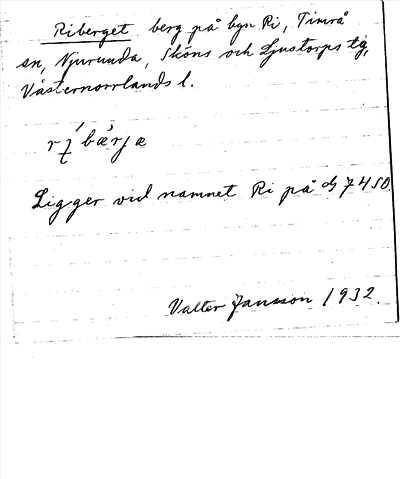 Riberget berg på byn Ri, Timrå
sn, Njurunda, Sköns och Ljustorps tg,
Västernorrlands l.
bærjæ
Ligger vid namnet Ri på 7450.
Valter Jansson 1932.